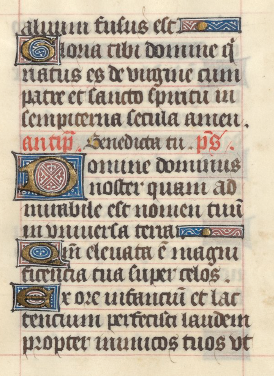 alurum fusus est
Gloria tibi domine q̄
natus es de virgine cum
patre et sancto spiritu in
sempiterna secula amen.
antip̄. Benedicta tu. p̄s.
Domine dominus
noster quam ad
mirabile est nomen tuū
in universa terra
Qm̄ elevata ē magni
ficentia tua super celos.
Ex ore infanciū et lac
tencium perfecisti laudem
propter inimicos tuos ut